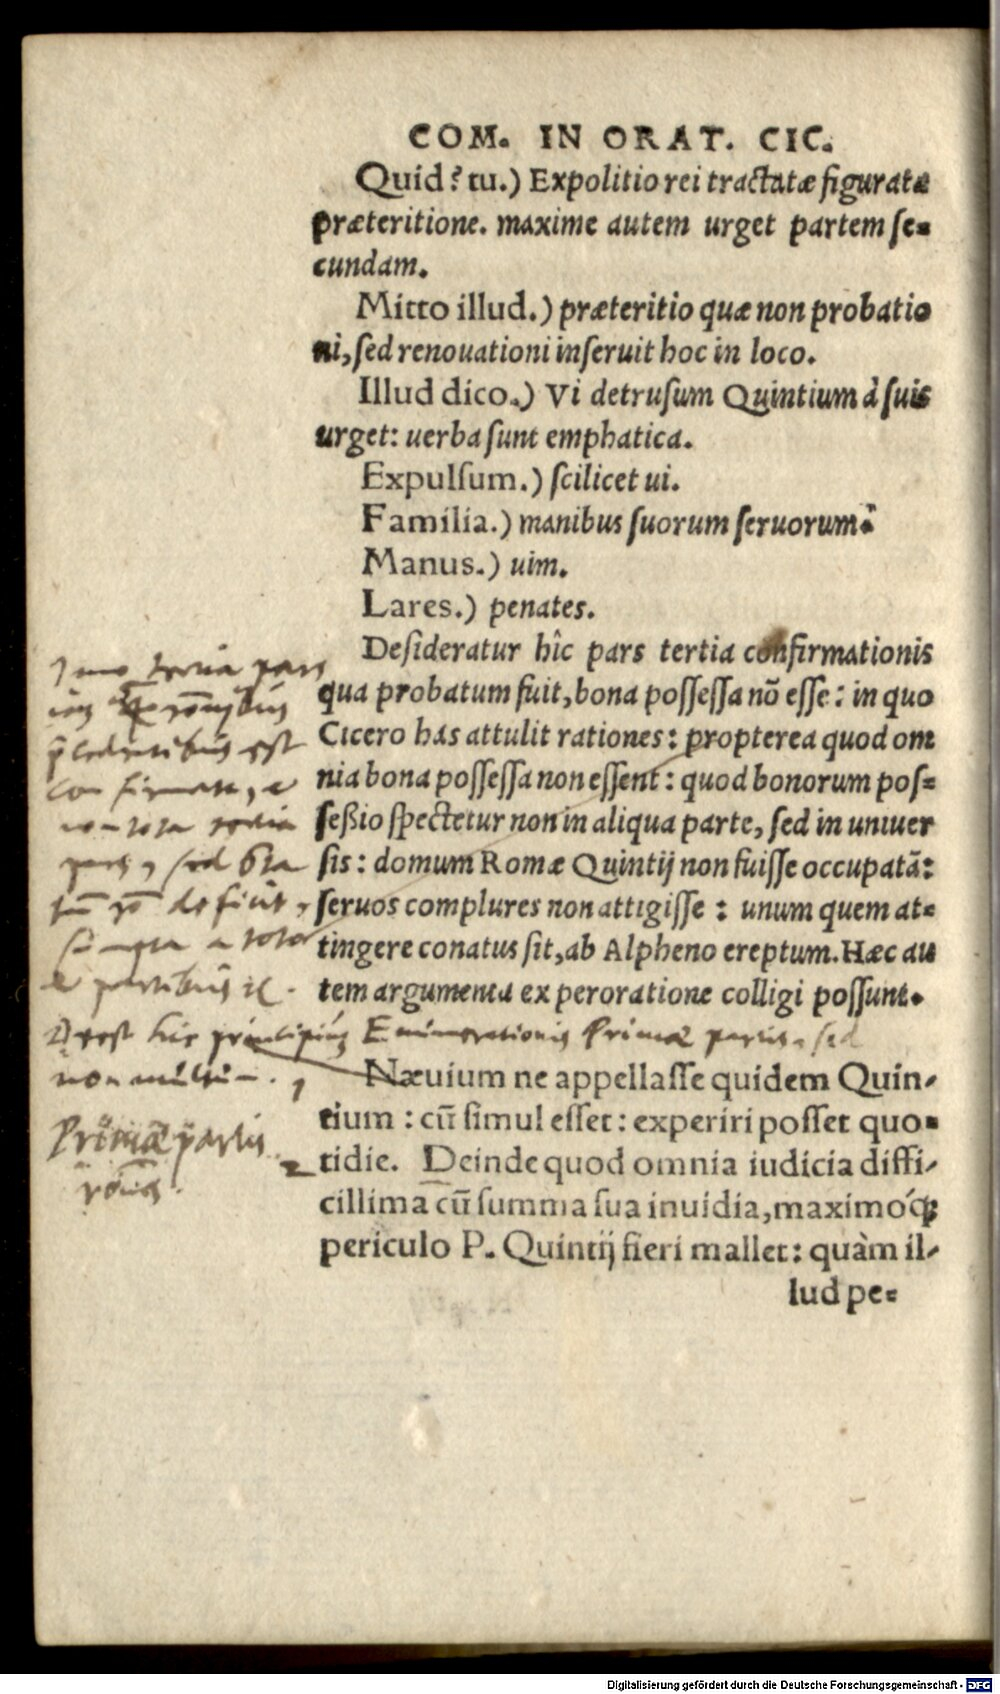 COM. IN ORAT. CIC.
Quid? tu.) Expolitio rei tractatæ figuratæ
præteritione. maxime autem urget partem se-
cundam.
Mitto illud.) præteritio quæ non probatio
ni, sed renouationi inseruit hoc in loco.
Illud dico.) Vi detrusum Quintium à suis
urget: uerba sunt emphatica.
Expulsum.) scilicet ui.
Familia.) manibus suorum seruorum.
Manus.) uim.
Lares.) penates.
Desideratur hîc pars tertia confirmationis
qua probatum fuit, bona possessa nō esse: in quo
Cicero has attulit rationes: propterea quod om
nia bona possessa non essent: quod bonorum pos-
seßio spectetur non in aliqua parte, sed in uniuer
sis: domum Romæ Quintij non fuisse occupatā:
seruos complures non attigisse: unum quem at-
tingere conatus sit, ab Alpheno ereptum. Hæc au
tem argumenta ex peroratione colligi possunt.
Næuium ne appellasse quidem Quin-
tium: cū simul esset: experiri posset quo-
tidie. Deinde quod omnia iudicia diffi-
cillima cū summa sua inuidia, maximóq;
periculo P. Quintij fieri mallet: quàm il-
lud pe-
Imo tertia pars
est
non tota tertia
pars, sed
a toto
Deest hic principiū Enumerationis Primæ partis, sed
non multum.
1
Primæ partis
2